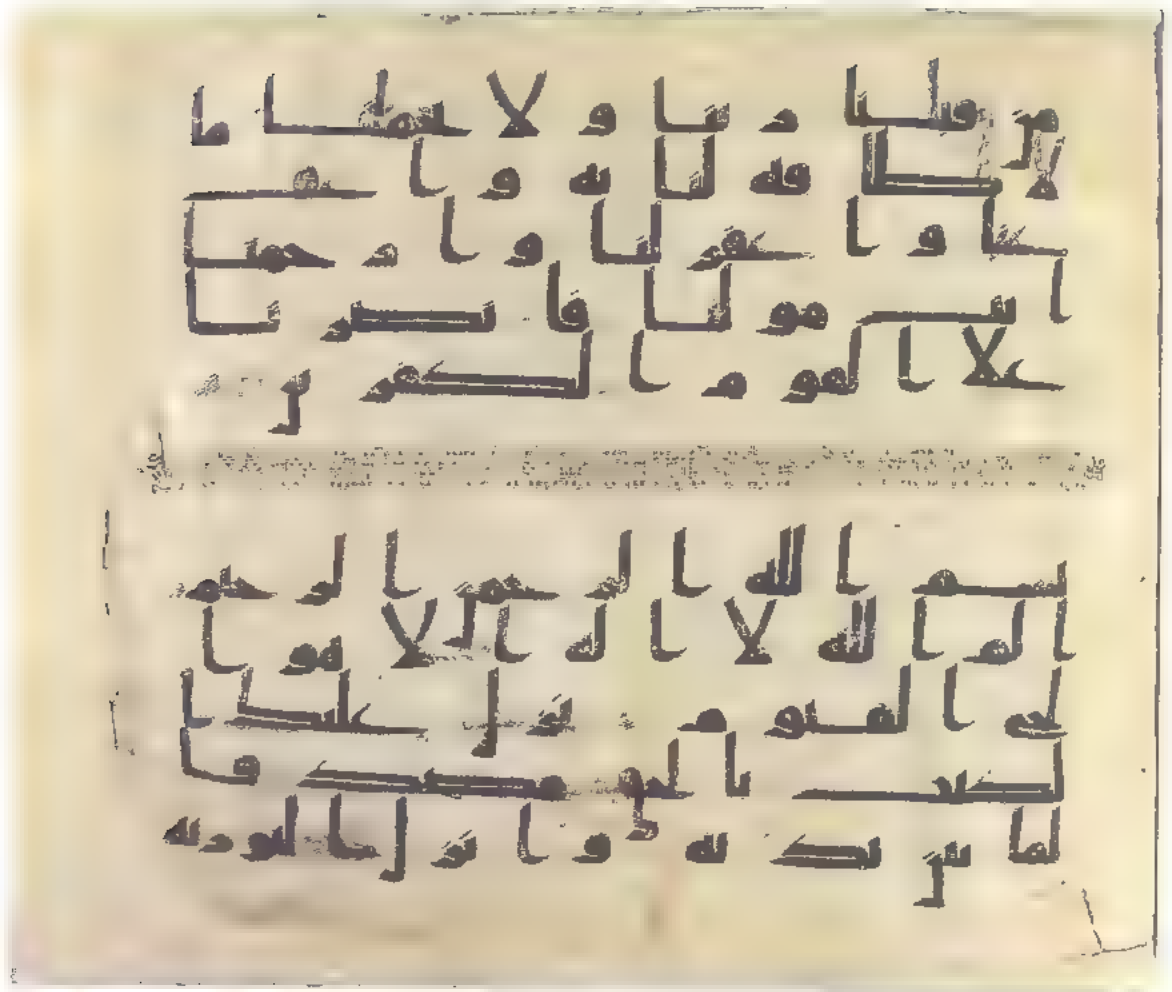 من قبلنا ربنا و لا تحملنا ما
لا طاقه لنا به و اعف
عنا و ا غفر لنا و ا ر حمنا
ا نت مو لنا فا نصر نا
علا ا لقو م ا لكفر ين
بسم ا لله ا لر حمن ا لر حيم
ا لم ا لله لا ا له ا لا هو ا
لحى ا لقيو م نز ل عليك ا
لكتب با لحق مصد قا
لما بين يد يه و ا نز ل ا لتو ر يه